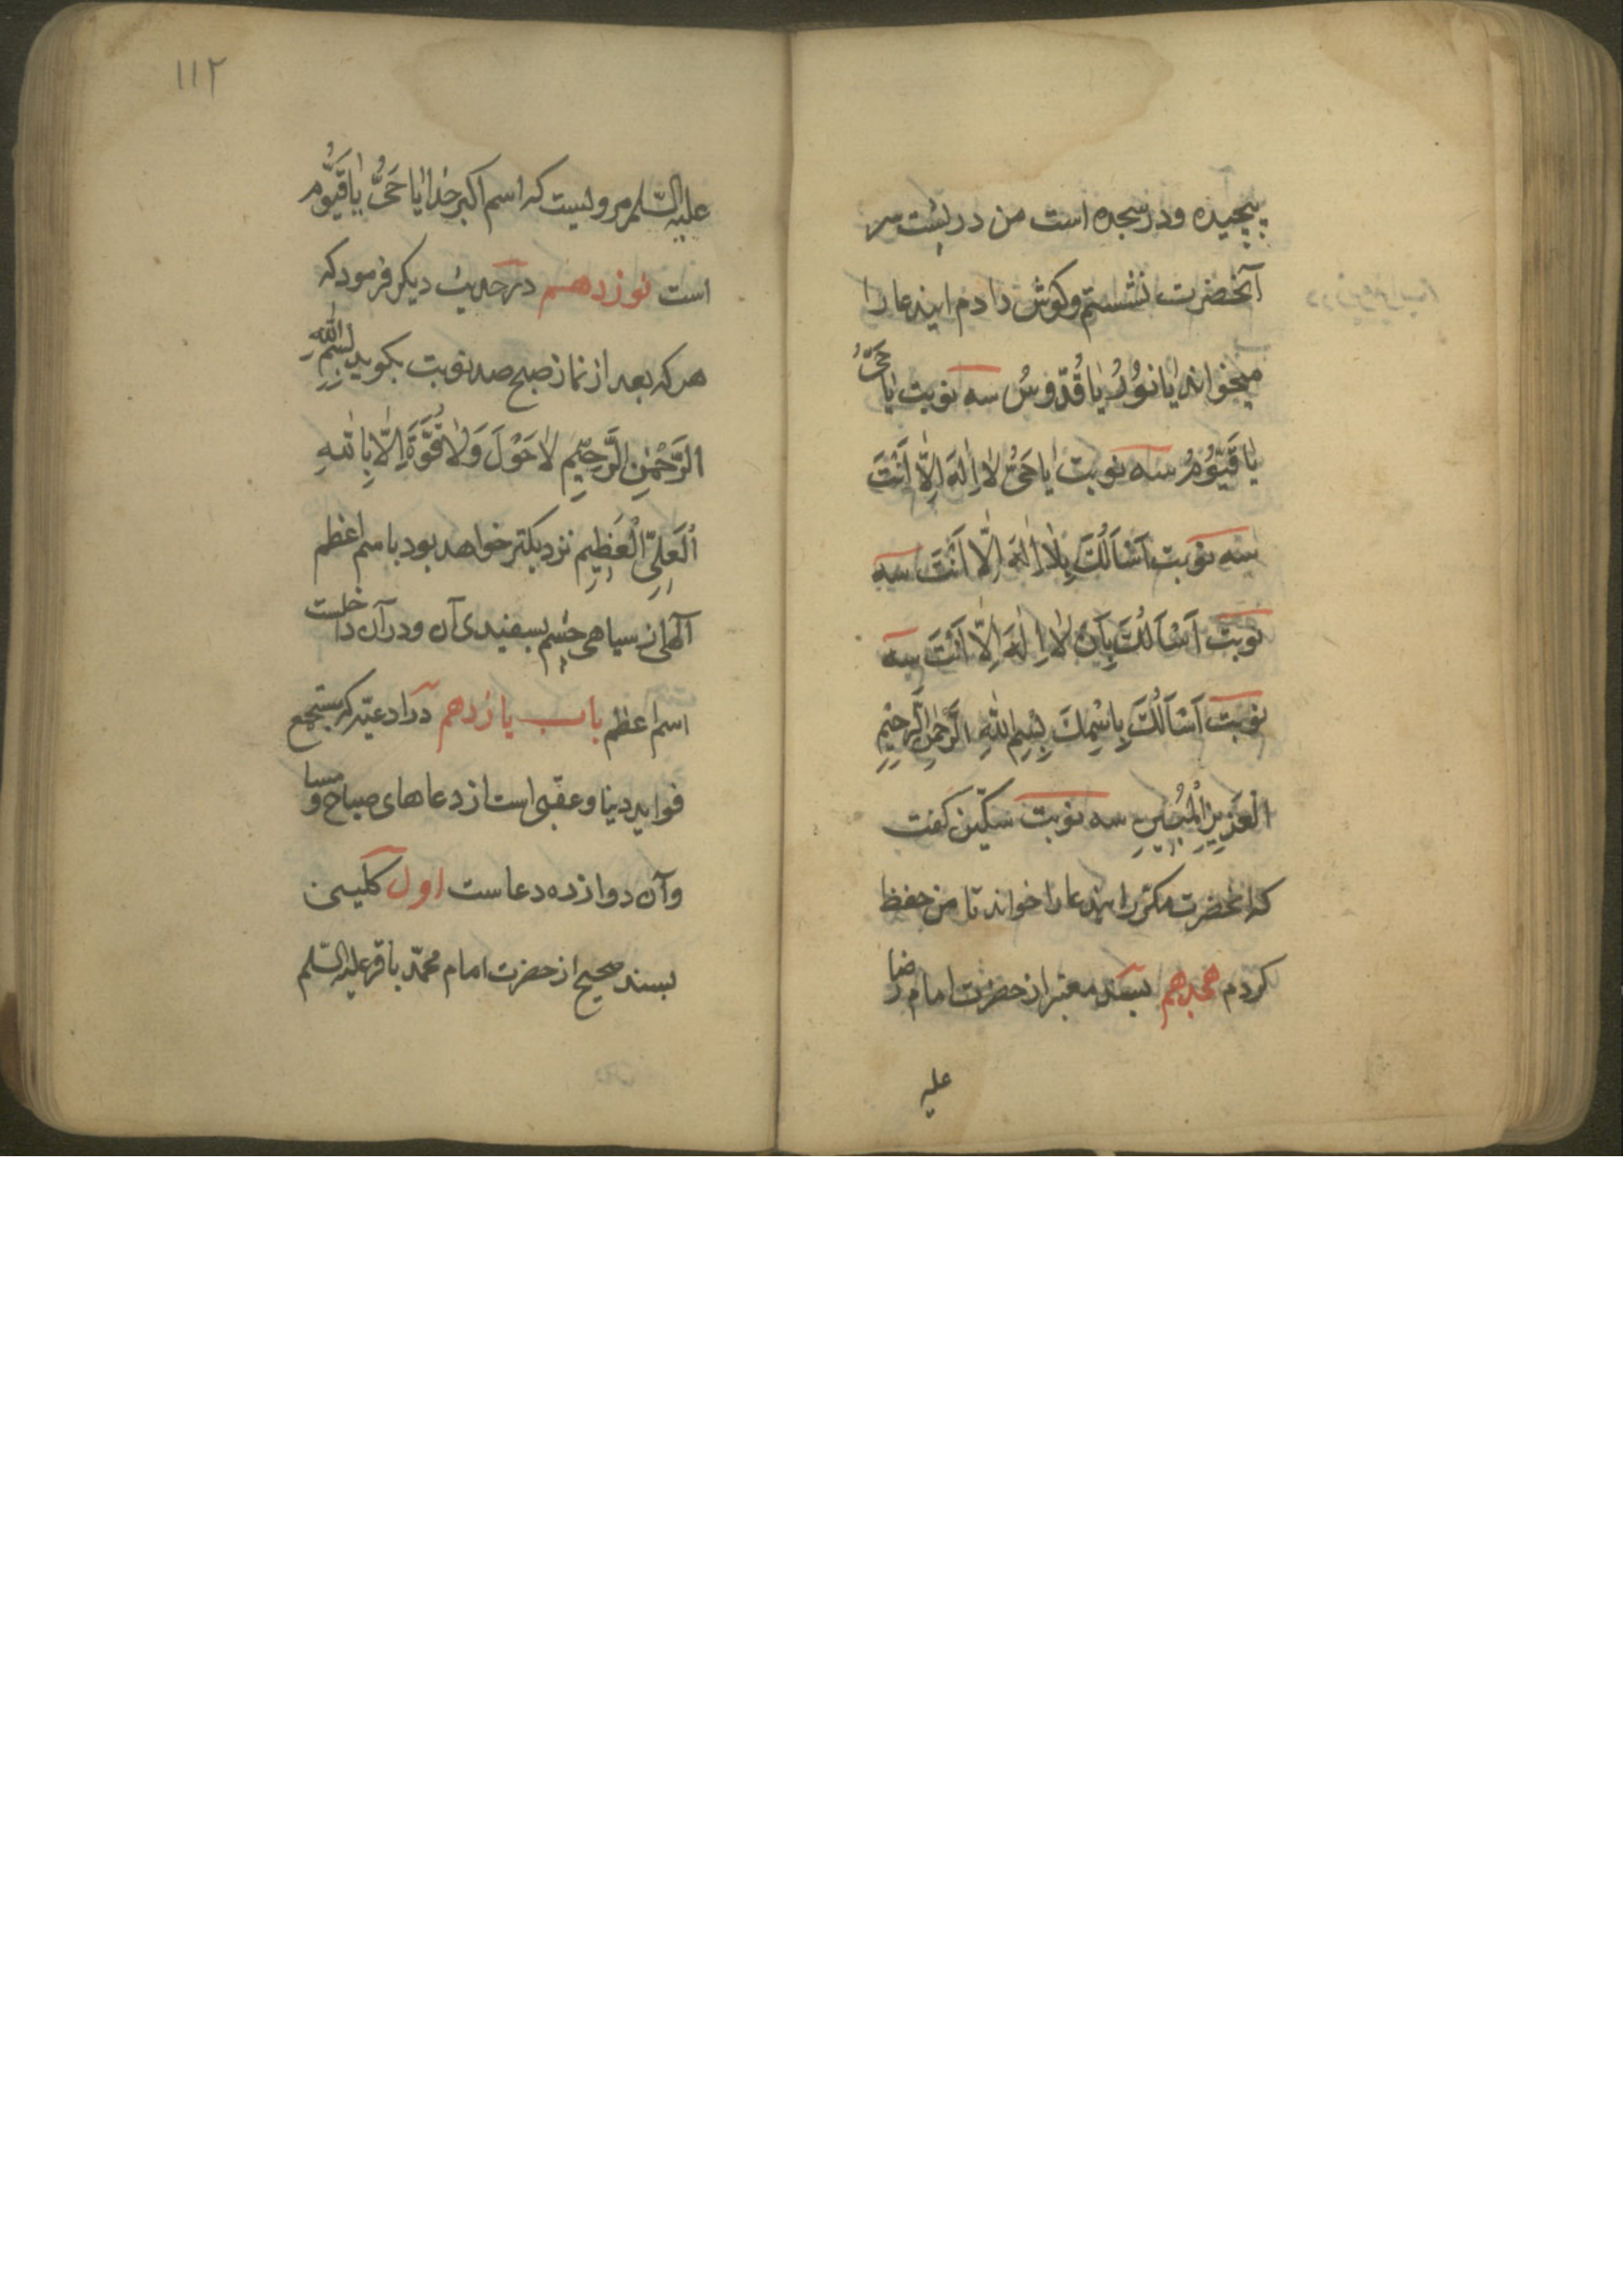 پیچیده و در سجده است من در پشت سر
آنحضرت نشستم و کوش دادم ایندعا را
میخواند یٰا نُورُ یٰا قُدّوسُ سه نوبت یٰا حَیُّ
یٰا قَیّوُمُ سه نوبت یٰا حَیُّ لٰا اِلٰهَ اِلّٰا اَنْتَ
سه نوبت اَسْاَلُكَ بِلٰا اِلٰهَ اِلّٰا اَنْتَ سه
نوبت اَسْاَلُكَ بِاَنْ لٰا اِلٰهَ اِلّٰا اَنْتَ سه
نوبت اَسْاَلُكَ بِاسْمِكَ بِسْمِ اللهِ الرَّحْمٰنِ الرَّحیٖمِ
الْعَزیٖزِ الْمُبیٖنِ سه نوبت سکّین کفت
که انحضرت مکرّر ایندعا را خواند تا من حفظ
کردم هجدهم بسند معتبر از حضرت امام رضا
علیه
۱۱۲
علیه السّلم مرویست که اسم اکبر خدا یٰا حَیُّ یٰا قَیُّومُ
است نوزدهم در حدیث دیکر فرمود که
هر که بعد از نماز صبح صد نوبت بکوید بِسْمِ اللّٰهِ
الرَّحْمٰنِ الرَّحیٖمِ لٰا حَوْلَ وَلٰا قُوَّةَ اِلّٰا بِاللهِ
الْعَلِیِّ الْعَظیٖمِ نزدیکتر خواهد بود باسم اعظم
آلهی از سیاهی چشم بسفیدی آن و در آن داخلست
اسم اعظم باب یازدهم در ادعیّه که مستجمع
فواید دینا و عقبی است از دعاهای صباح و مسا
و آن دوازده دعاست اول کلینی
بسند صحیح از حضرت امام محمّد باقر علیه السّلم